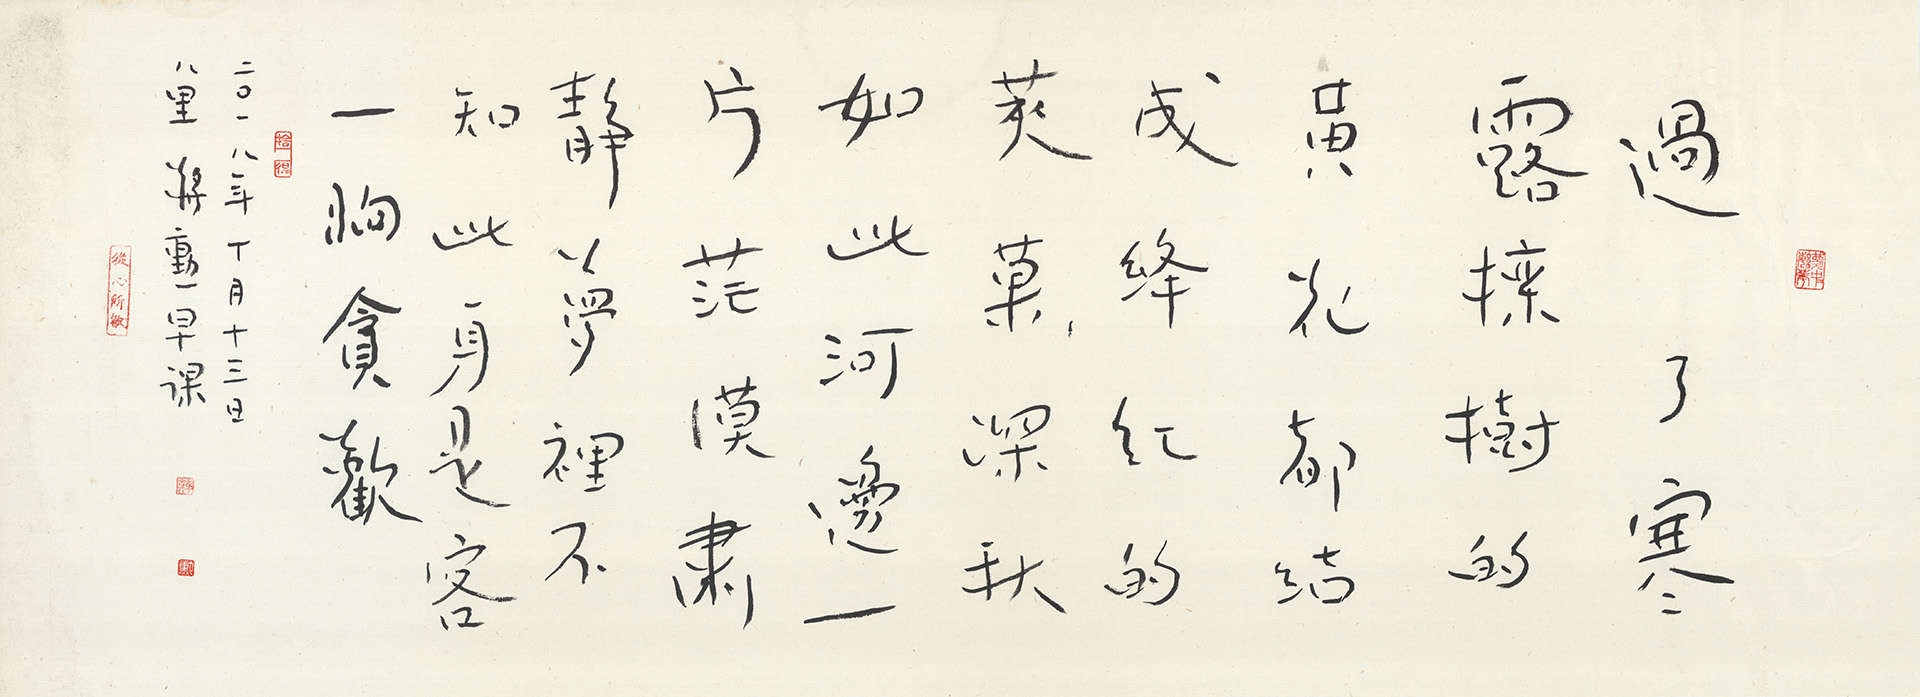 過了寒
露欒樹的
黃花都結
成絳紅的
莢菓深秋
如此河邊一
片茫漠肅
靜夢裡不
知此身是客
一晌貪歡
拾得
二〇一八年十月十三日
八里 蔣勳 早課
從心所欲